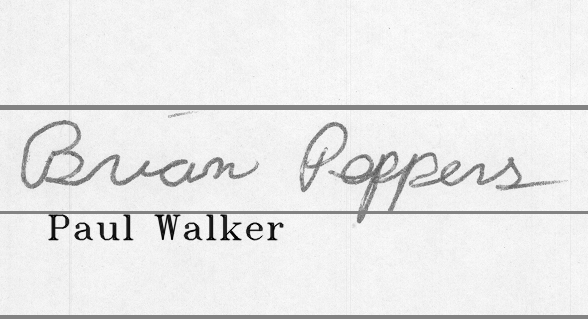 Brian Peppers
Paul Walker